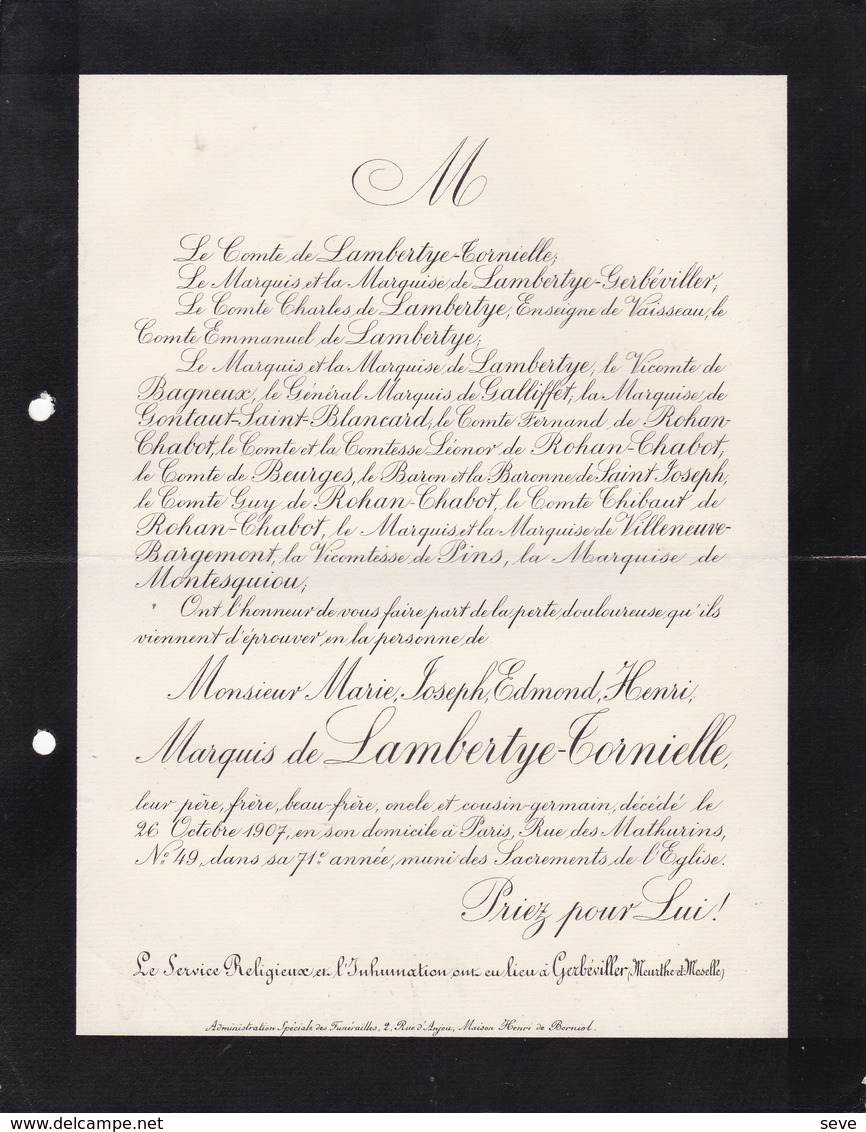 M
Le Comte de Lambertye-Tornielle;
Le Marquis et la Marquise de Lambertye-Gerbéviller;
Le Comte Charles de Lambertye, Enseigne de Vaisseau, le
Comte Emmanuel de Lambertye;
Le Marquis et la Marquise de Lambertye, le Vicomte de
Bagneux, le Général Marquis de Galliffet, la Marquise de
Gontaut-Saint-Blancard, le Comte Fernand de Rohan-
Chabot, le Comte et la Comtesse Léonor de Rohan-Chabot,
le Comte de Beurges, le Baron et la Baronne de Saint Joseph,
le Comte Guy de Rohan-Chabot, le Comte Thibaut de
Rohan-Chabot, le Marquis et la Marquise de Villeneuve-
Bargemont, la Vicomtesse de Pins, la Marquise de
Montesquiou;
Ont l'honneur de vous faire part de la perte douloureuse qu'ils
viennent d'éprouver en la personne de
Monsieur Marie, Joseph, Edmond, Henri,
Marquis de Lambertye-Tornielle,
leur père, frère, beau-frère, oncle et cousin-germain, décédé le
26 Octobre 1907, en son domicile à Paris, Rue des Mathurins,
No 49, dans sa 71e année, muni des Sacrements de l'Eglise.
Priez pour Lui!
Le Service Religieux et l'Inhumation ont eu lieu à Gerbéviller, (Meurthe et Moselle)
Administration Spéciale des Funérailles, 2, Rue d'Anjou, Maison Henri de Borniol.
seve